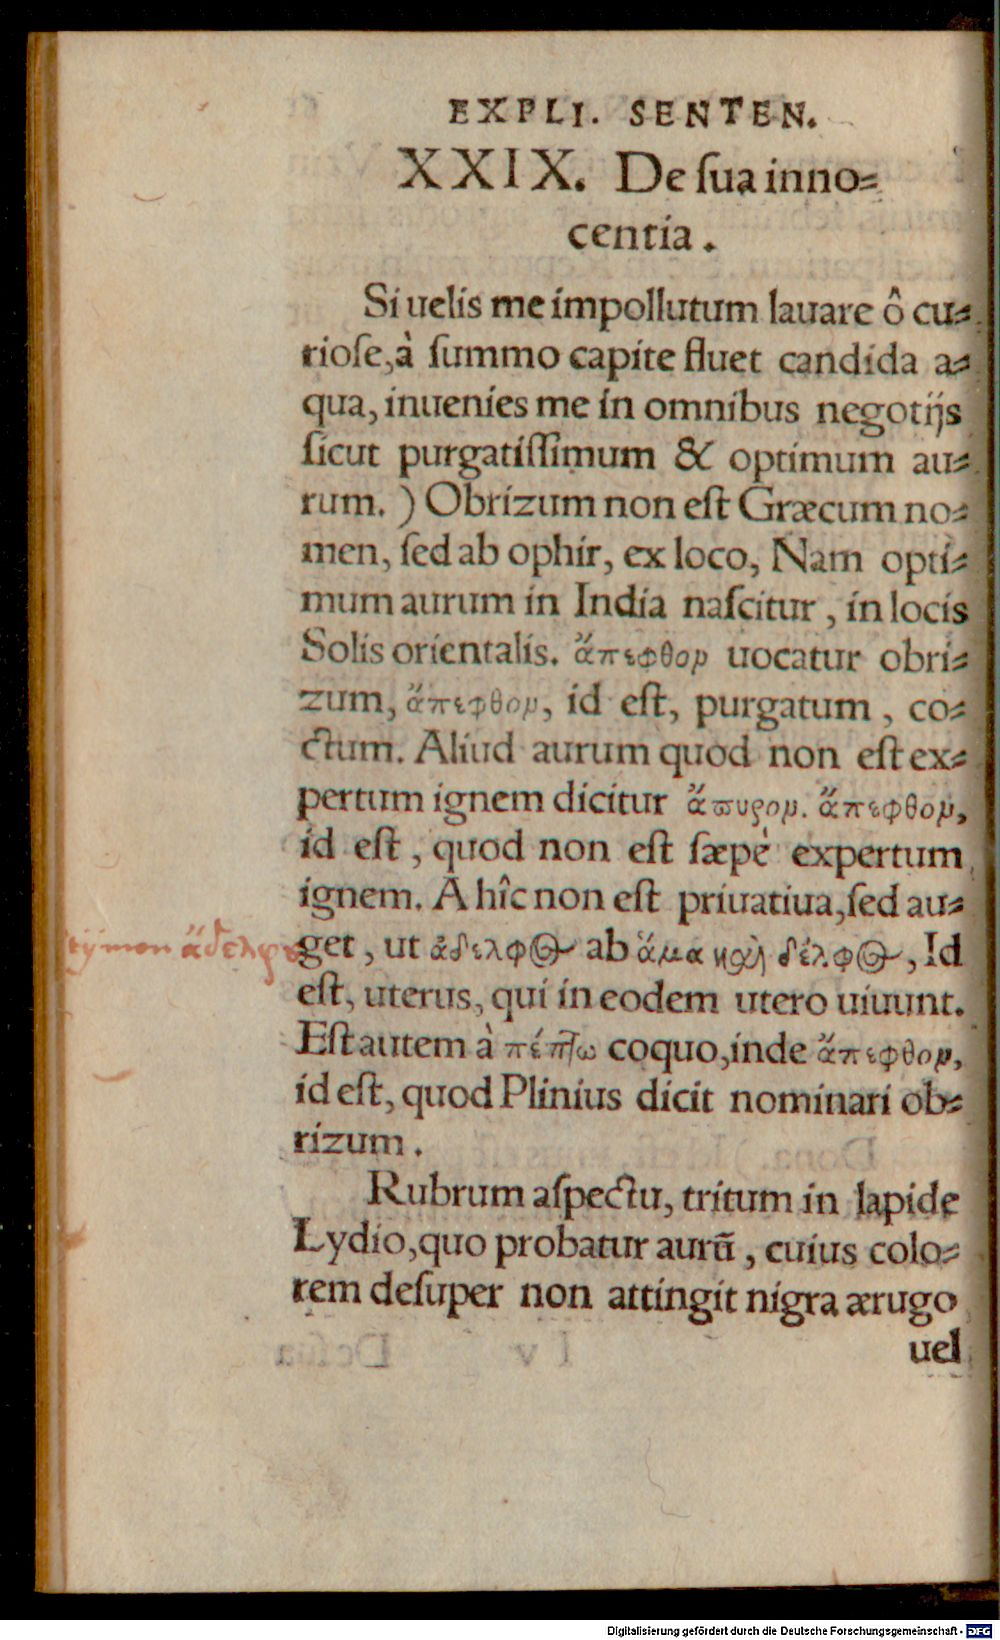 EXPLI. SENTEN.
XXIX. De ſua inno-
centia.
Si uelis me impollutum lauare ô cu-
rioſe, à ſummo capite fluet candida a-
qua, inuenies me in omnibus negotijs
ſicut purgatiſſimum & optimum au-
rum.) Obrizum non eſt Græcum no-
men, ſed ab ophir, ex loco, Nam opti-
mum aurum in India naſcitur, in locis
Solis orientalis. ἄπεφθορ uocatur obri-
zum, ἄπεφθομ, id eſt, purgatum, co-
ctum. Aliud aurum quod non eſt ex-
pertum ignem dicitur ἄπυρομ. ἄπεφθομ,
id eſt, quod non eſt ſæpè expertum
ignem. A hîc non eſt priuatiua, ſed au-
etymon ἄδελφος
get, ut ἀδελφος ab ἅμα καὶ δέλφος, Id
eſt, uterus, qui in eodem utero uiuunt.
Eſt autem à πέπτω coquo, inde ἄπεφθομ,
id eſt, quod Plinius dicit nominari ob-
rizum.
Rubrum aſpectu, tritum in lapide
Lydio, quo probatur aurū, cuius colo-
rem deſuper non attingit nigra ærugo
uel
Digitalisierung gefördert durch die Deutsche Forschungsgemeinschaft - DFG